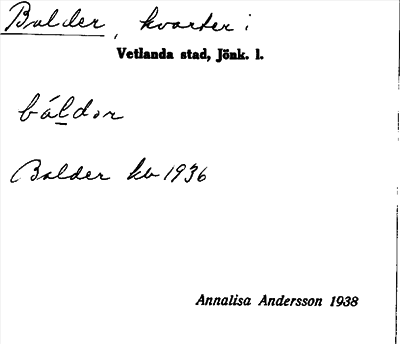 Balder, kvarter i
Vetlanda stad, Jönk. l.
báldər
Balder kv 1936
Annalisa Andersson 1938